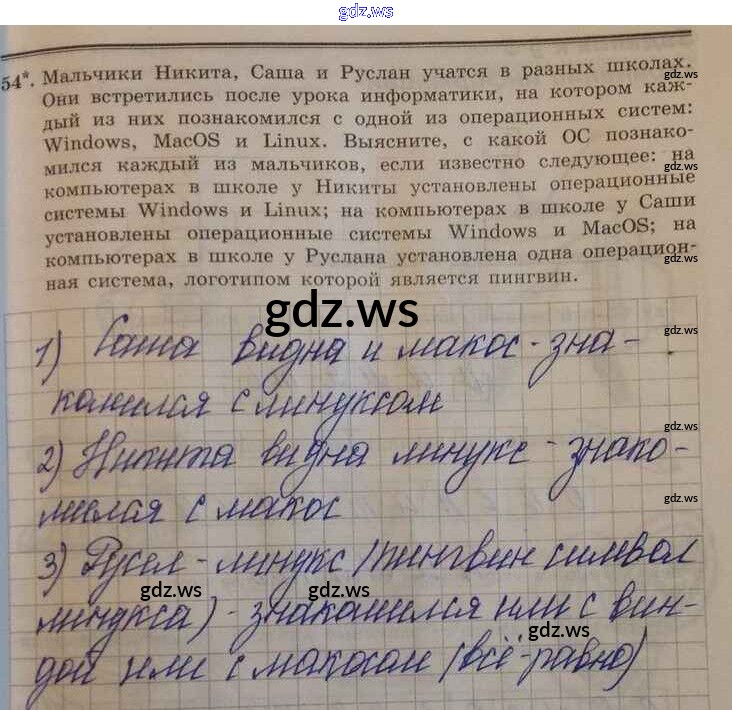 gdz.ws
54*. Мальчики Никита, Саша и Руслан учатся в разных школах.
gdz.ws
Они встретились после урока информатики, на котором каж-
дый из них познакомился с одной из операционных систем:
gdz.ws
Windows, MacOS и Linux. Выясните, с какой ОС познако-
мился каждый из мальчиков, если известно следующее: на
компьютерах в школе у Никиты установлены операционные
gdz.ws
системы Windows и Linux; на компьютерах в школе у Саши
установлены операционные системы Windows и MacOS; на
компьютерах в школе у Руслана установлена одна операцион-
gdz.ws
ная система, логотипом которой является пингвин.
gdz.ws
1) Саша видна и макос - зна-
gdz.ws
комился с линуксом
gdz.ws
2) Никита видна линукс - знако-
мился с макос
gdz.ws
3) Русел - линукс (пингвин символ
gdz.ws
gdz.ws
линукса) - знакомился или с вин-
gdz.ws
дой или с макосом (всё-равно)